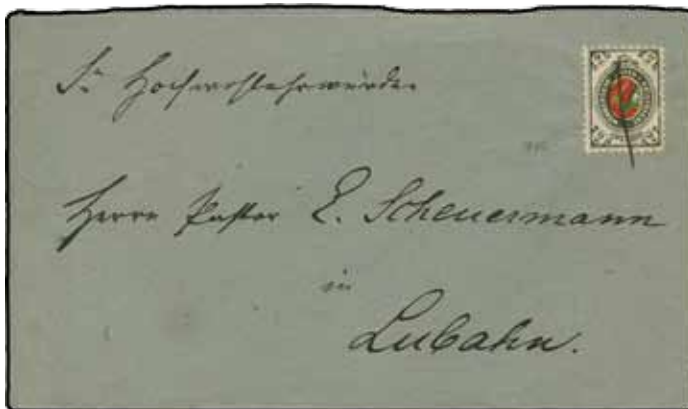 Sr Hochwohlehrwürden
Herrn Pastor E. Scheuermann
in
Lubahn.